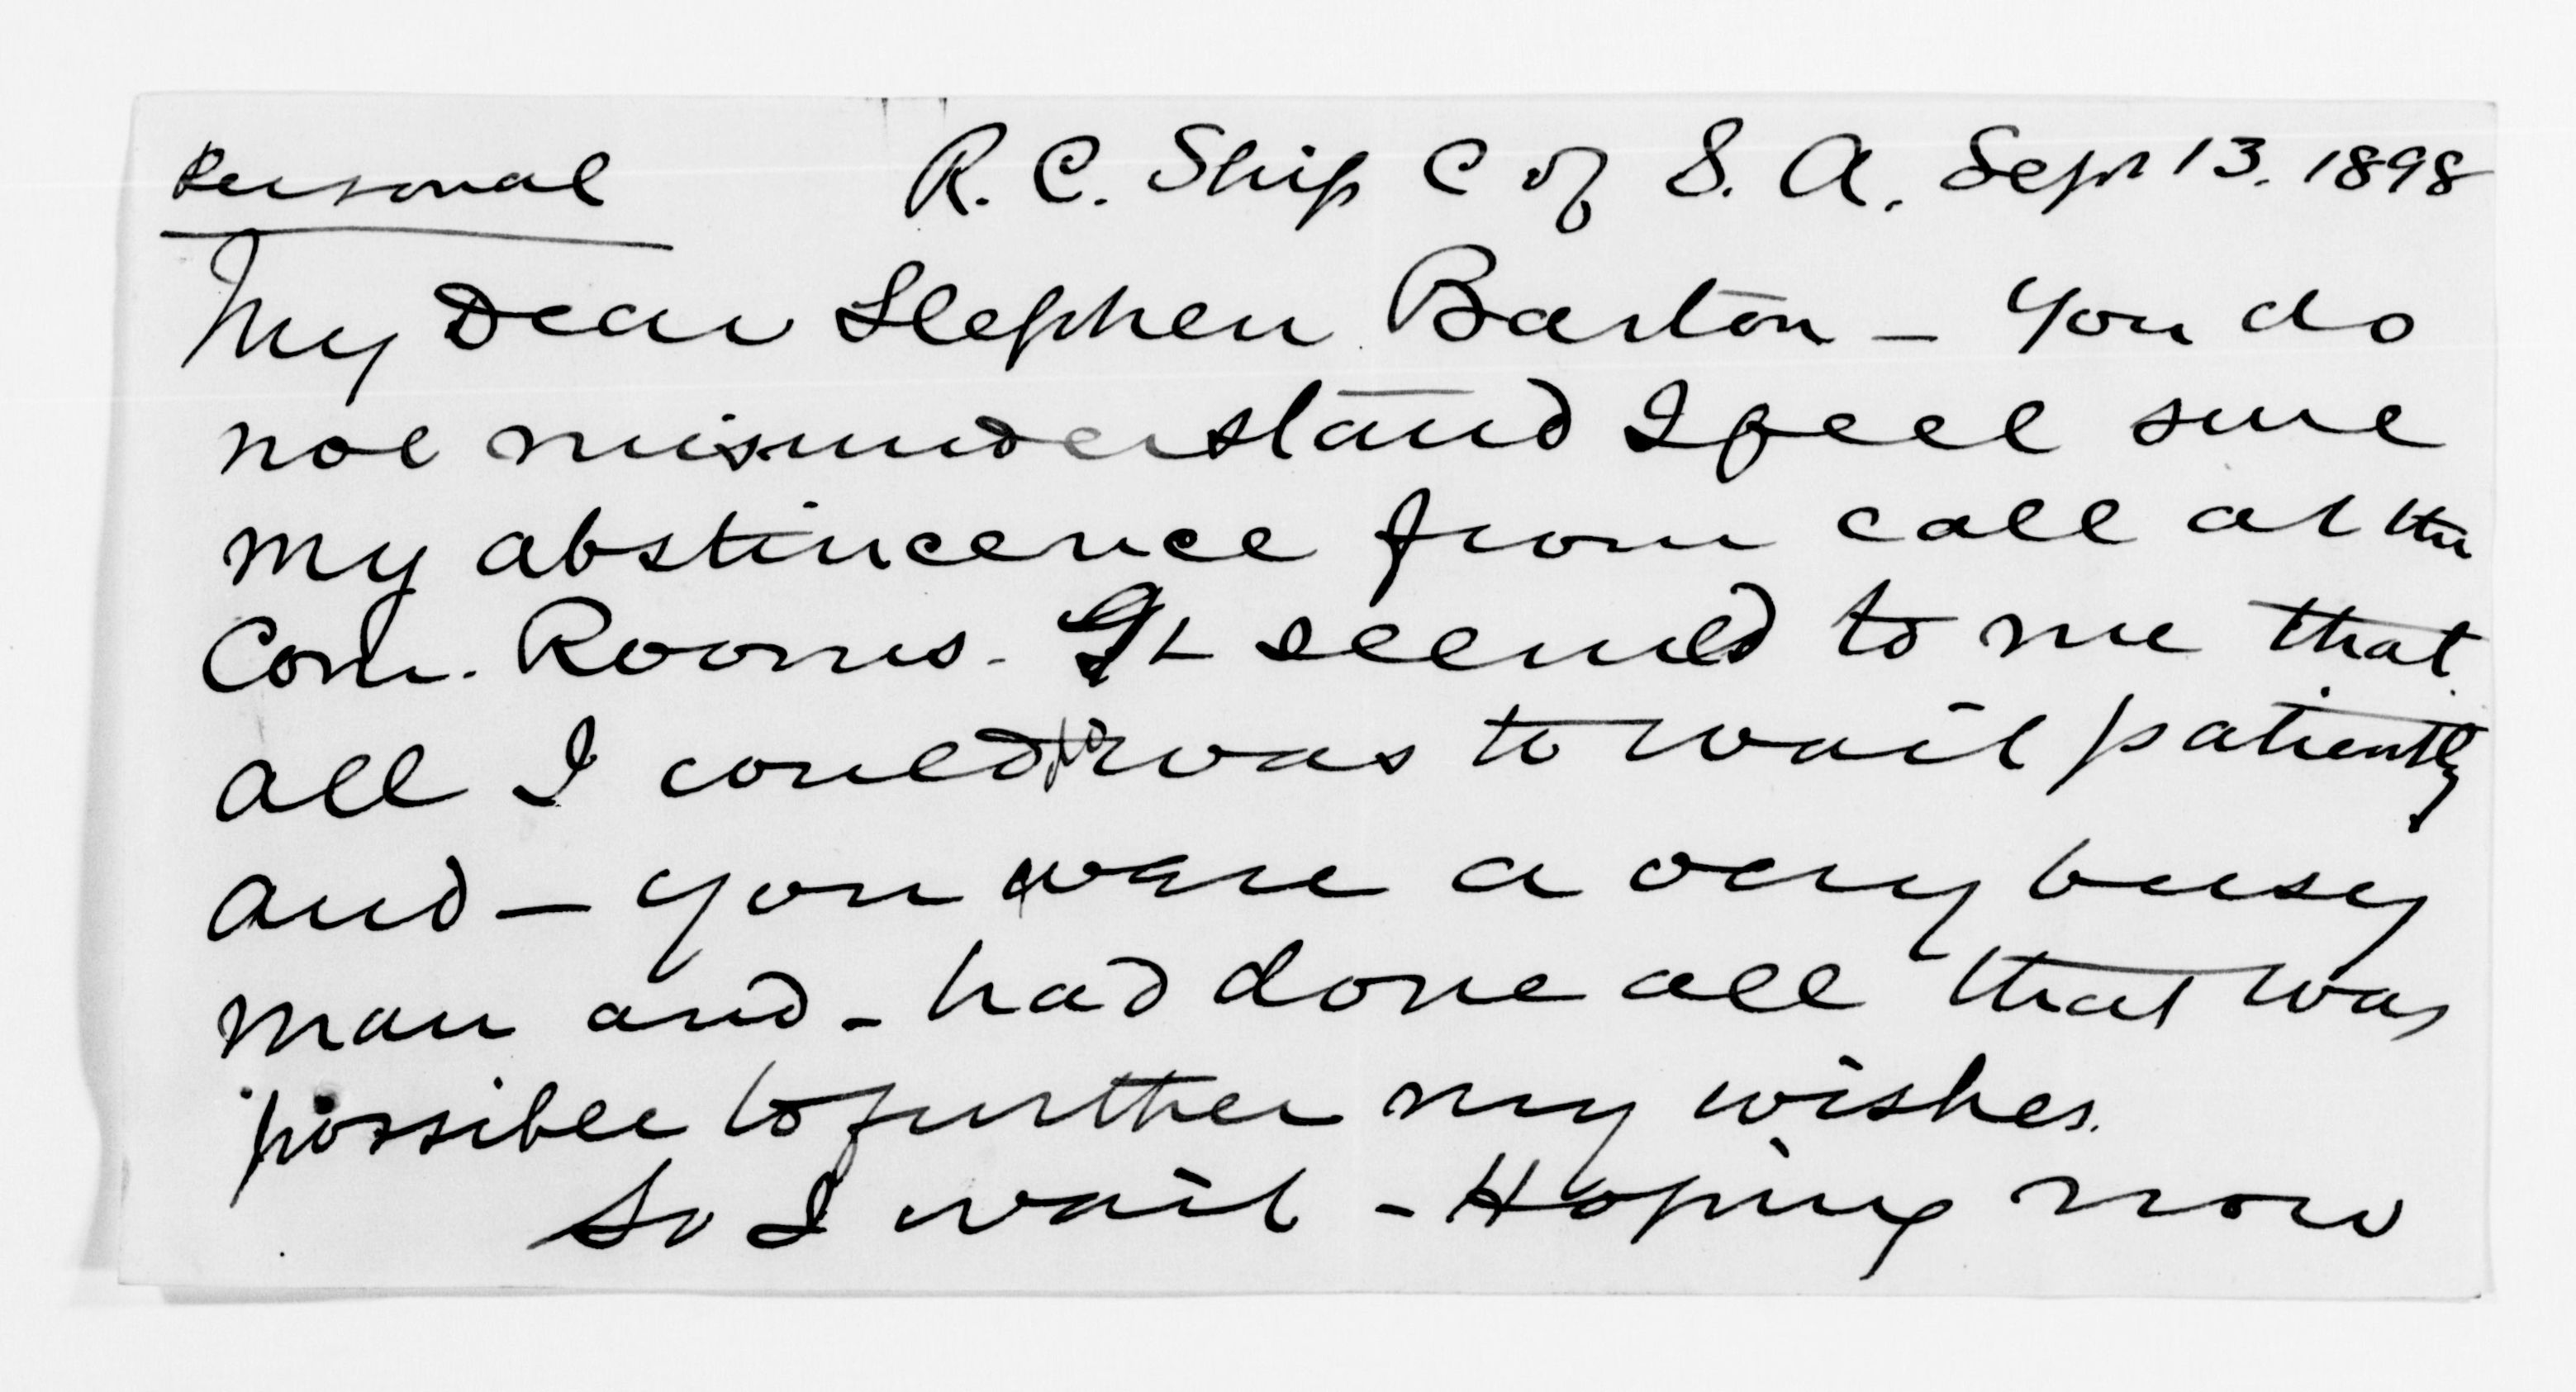 Personal R. C. Ship C of S. A. Sept 13. 1898
My Dear Stephen Barton – You do
not misunderstand I feel sure
my abstincence from call at the
Com. Rooms. It seemed to me that
all I could do was to wait patiently
and – you were a very busy
man and – had done all that was
possible to further my wishes.
So I wait – Hoping now